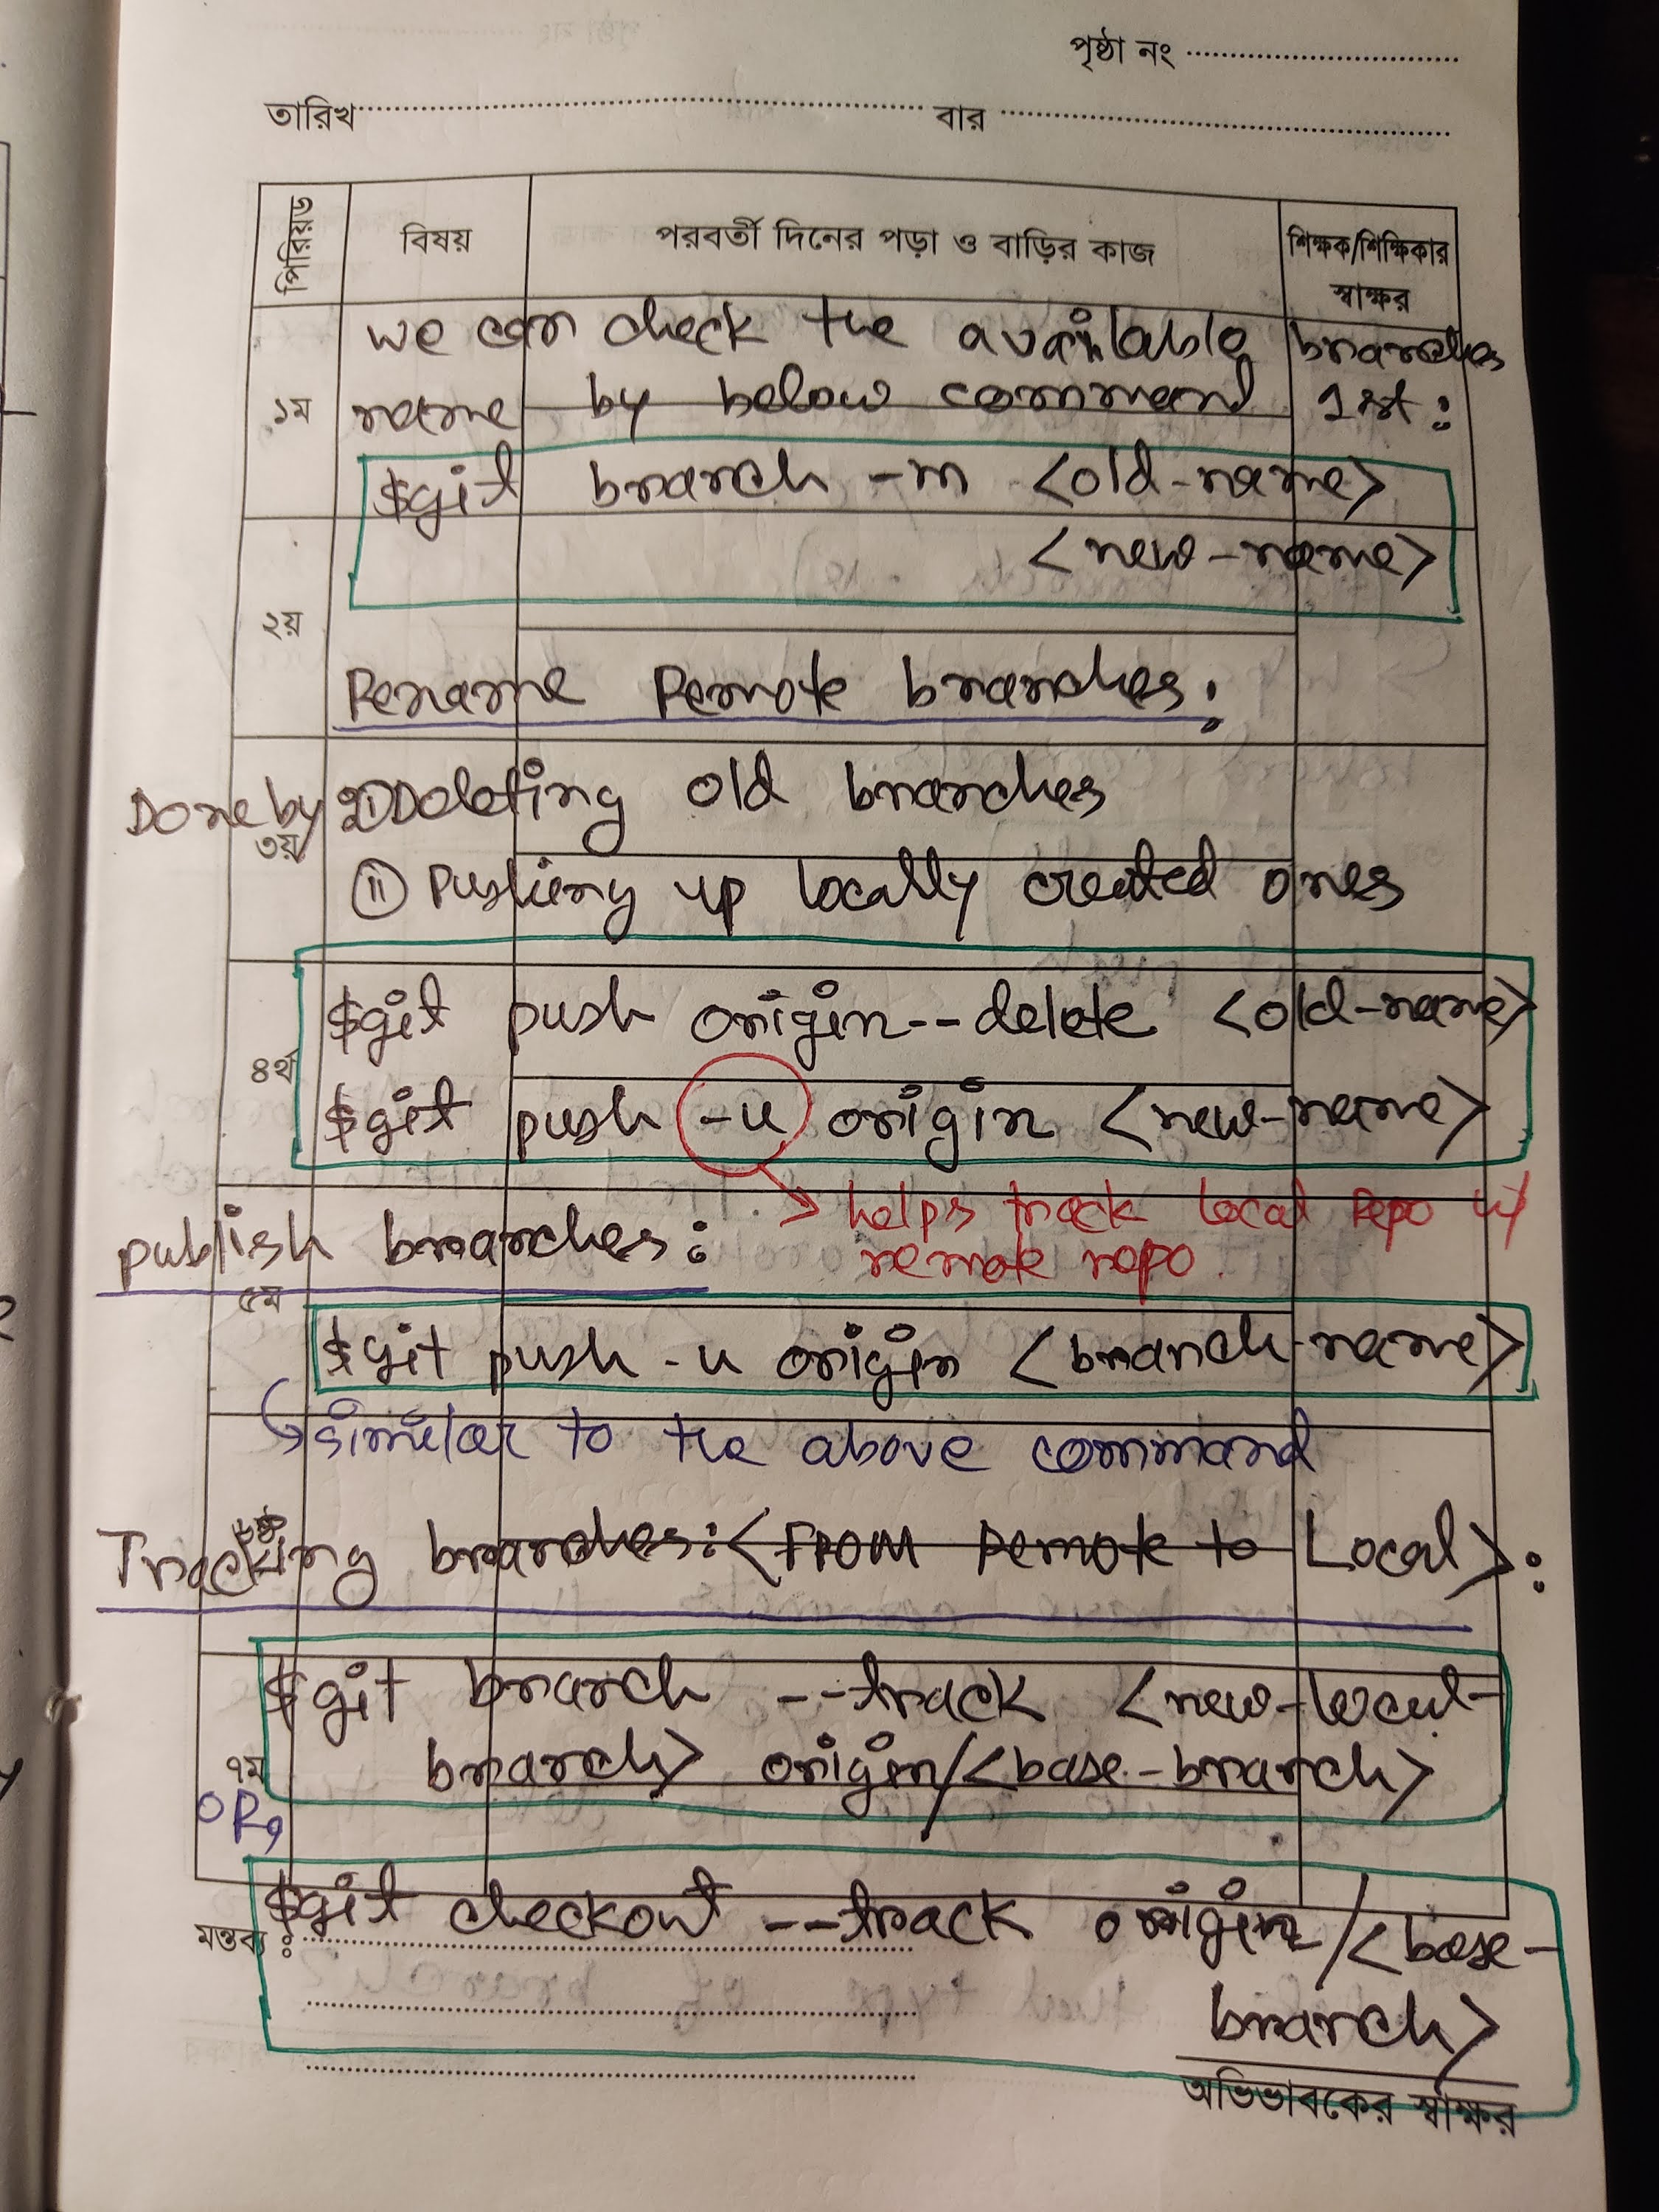 পৃষ্ঠা নং
তারিখ বার
পিরিয়ড বিষয় পরবর্তী দিনের পড়া ও বাড়ির কাজ শিক্ষক/শিক্ষিকার স্বাক্ষর
we can check the available branches
১ম name by below command 1st:
$git branch -m <old-name>
<new-name>
২য়
Rename Remote branches:
Done by i) Deleting old branches
৩য়
ii) Pushing up locally created ones
$git push origin --delete <old-name>
৪র্থ
$git push -u origin <new-name>
helps track local Repo w/
publish branches:
remote repo.
৫ম
$git push -u origin <branch-name>
similar to the above command
৬ষ্ঠ
Tracking branches: <FROM Remote to Local>:
$git branch --track <new-local-
branch> origin/<base-branch>
৭ম
OR,
$git checkout --track origin/<base-
মন্তব্য ঃ
branch>
অভিভাবকের স্বাক্ষর